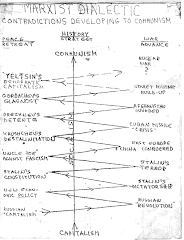 MARXIST DIALECTIC
CONTRADICTIONS DEVELOPING TO COMMUNISM
PEACE RETREAT
HISTORY STRATEGY
WAR ADVANCE
COMMUNISM
NUCLEAR WAR
YELTSIN'S DEMOCRATIC CAPITALISM
SOVIET NUCLEAR BUILD-UP
GORBACHEV'S GLASNOST
AFGHANISTAN INVADED
BREZHNEV'S DETENTE
CUBAN MISSILE CRISIS
KHRUSHCHEV'S DESTALINIZATION
EAST EUROPE CHINA CONQUERED
UNCLE JOE AGAINST FASCISM
STALIN'S TERROR
STALIN'S CONSTITUTION
STALIN'S DICTATORSHIP
NEW ECONOMIC POLICY
RUSSIAN REVOLUTION
RUSSIAN CAPITALISM
CAPITALISM